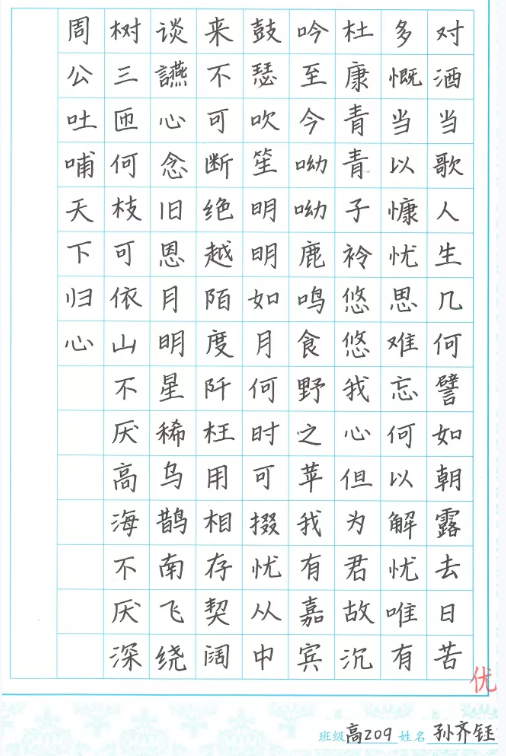 对酒当歌人生几何譬如朝露去日苦
多慨当以慷忧思难忘何以解忧唯有
杜康青青子衿悠悠我心但为君故沉
吟至今呦呦鹿鸣食野之苹我有嘉宾
鼓瑟吹笙明明如月何时可掇忧从中
来不可断绝越陌度阡枉用相存契阔
谈讌心念旧恩月明星稀乌鹊南飞绕
树三匝何枝可依山不厌高海不厌深
周公吐哺天下归心
优
班级 高209 姓名 孙齐钰